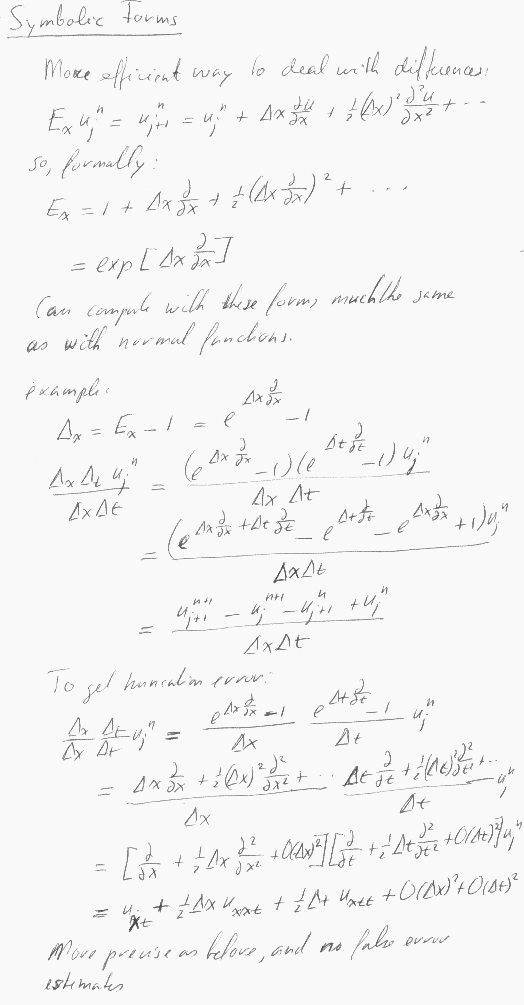 Symbolic Forms
More efficient way to deal with differences:
E_x u_j^n = u_{j+1}^n = u_j^n + Δx ∂u/∂x + 1/2 (Δx)² ∂²u/∂x² + ...
so, formally:
E_x = 1 + Δx ∂/∂x + 1/2 (Δx ∂/∂x)² + ...
= exp [Δx ∂/∂x]
Can compute with these forms much the same
as with normal functions.
example:
Δ_x = E_x - 1 = e^{Δx ∂/∂x} - 1
Δ_x Δ_t u_j^n / ΔxΔt = (e^{Δx ∂/∂x} - 1)(e^{Δt ∂/∂t} - 1) u_j^n / Δx Δt
= (e^{Δx ∂/∂x + Δt ∂/∂t} - e^{Δt ∂/∂t} - e^{Δx ∂/∂x} + 1) u_j^n / ΔxΔt
= u_{j+1}^{n+1} - u_j^{n+1} - u_{j+1}^n + u_j^n / ΔxΔt
To get truncation error:
Δ_x/Δx Δ_t/Δt u_j^n = e^{Δx ∂/∂x} - 1 / Δx e^{Δt ∂/∂t} - 1 / Δt u_j^n
= Δx ∂/∂x + 1/2 (Δx)² ∂²/∂x² + ... / Δx Δt ∂/∂t + 1/2 (Δt)² ∂²/∂t² + ... / Δt u_j^n
= [∂/∂x + 1/2 Δx ∂²/∂x² + O(Δx)²] [∂/∂t + 1/2 Δt ∂²/∂t² + O(Δt)²] u_j^n
= u_{xt} + 1/2 Δx u_{xxt} + 1/2 Δt u_{xtt} + O(Δx)² + O(Δt)²
More precise as before, and no false error
estimates